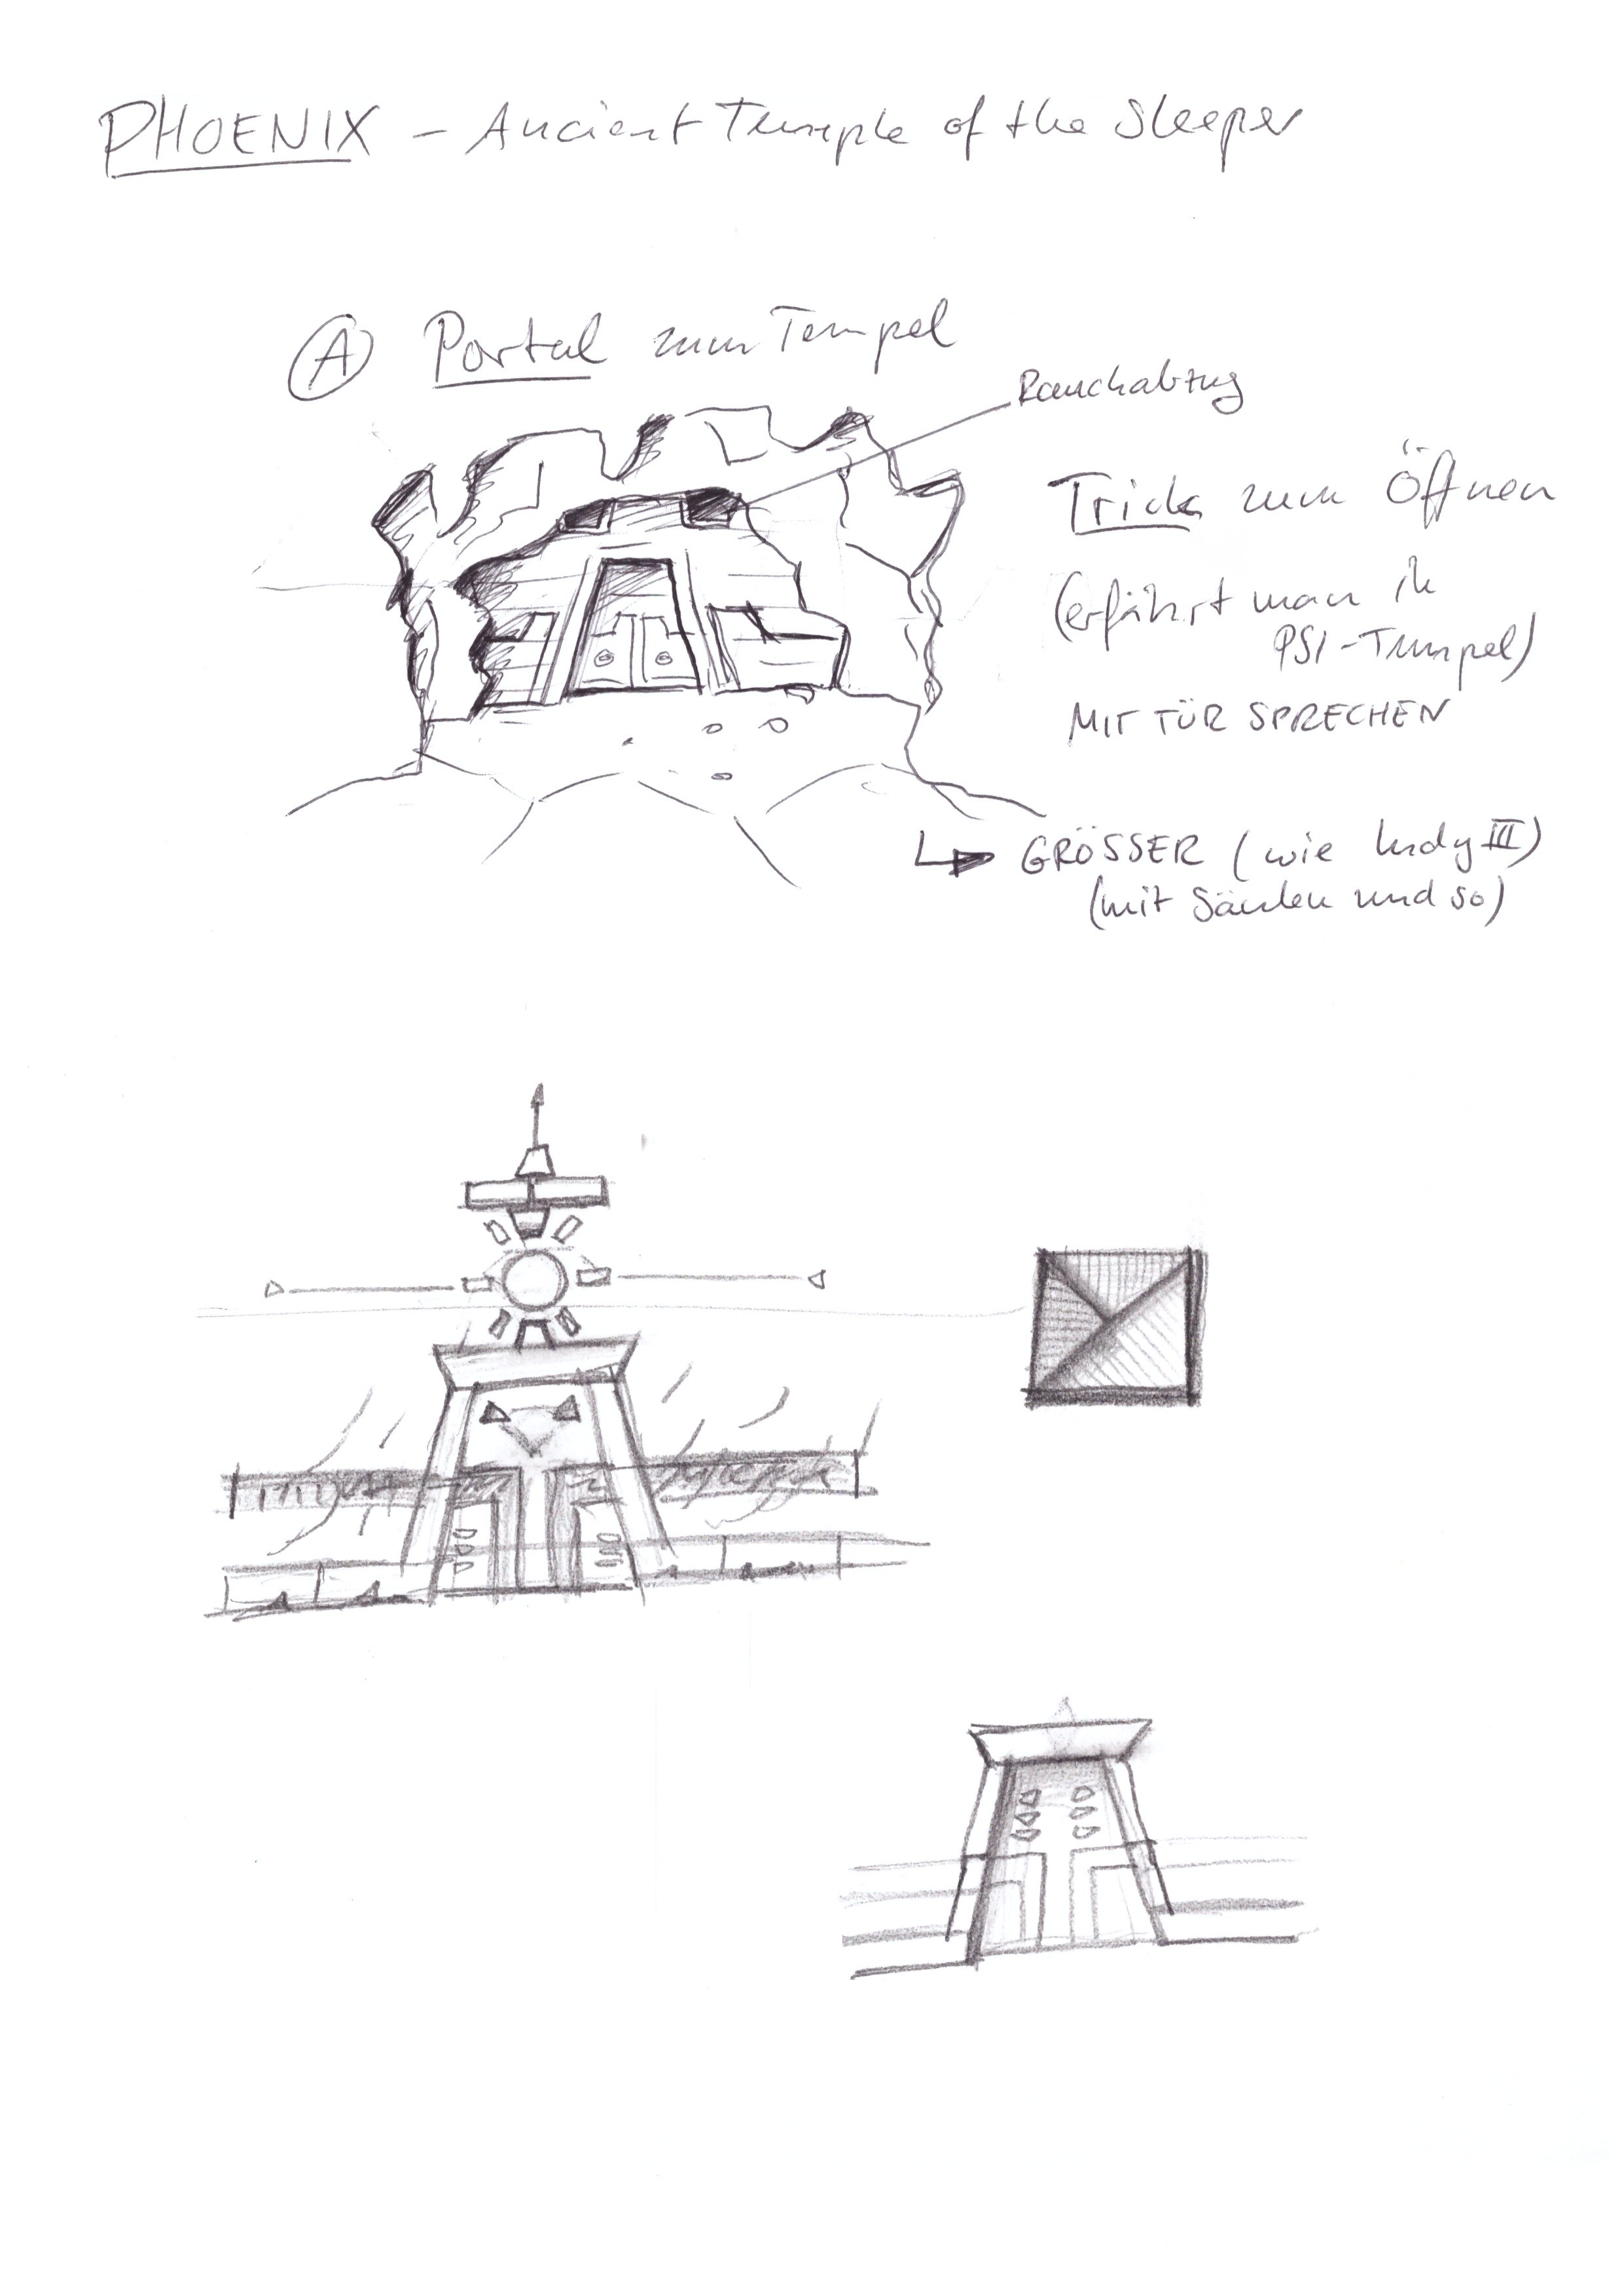 PHOENIX – Ancient Temple of the Sleeper
(A) Portal zum Tempel
Rauchabzug
Trick zum Öffnen
(erfährt man in
PSI-Tempel)
MIT TÜR SPRECHEN
GRÖSSER (wie Indy III)
(mit Säulen und so)